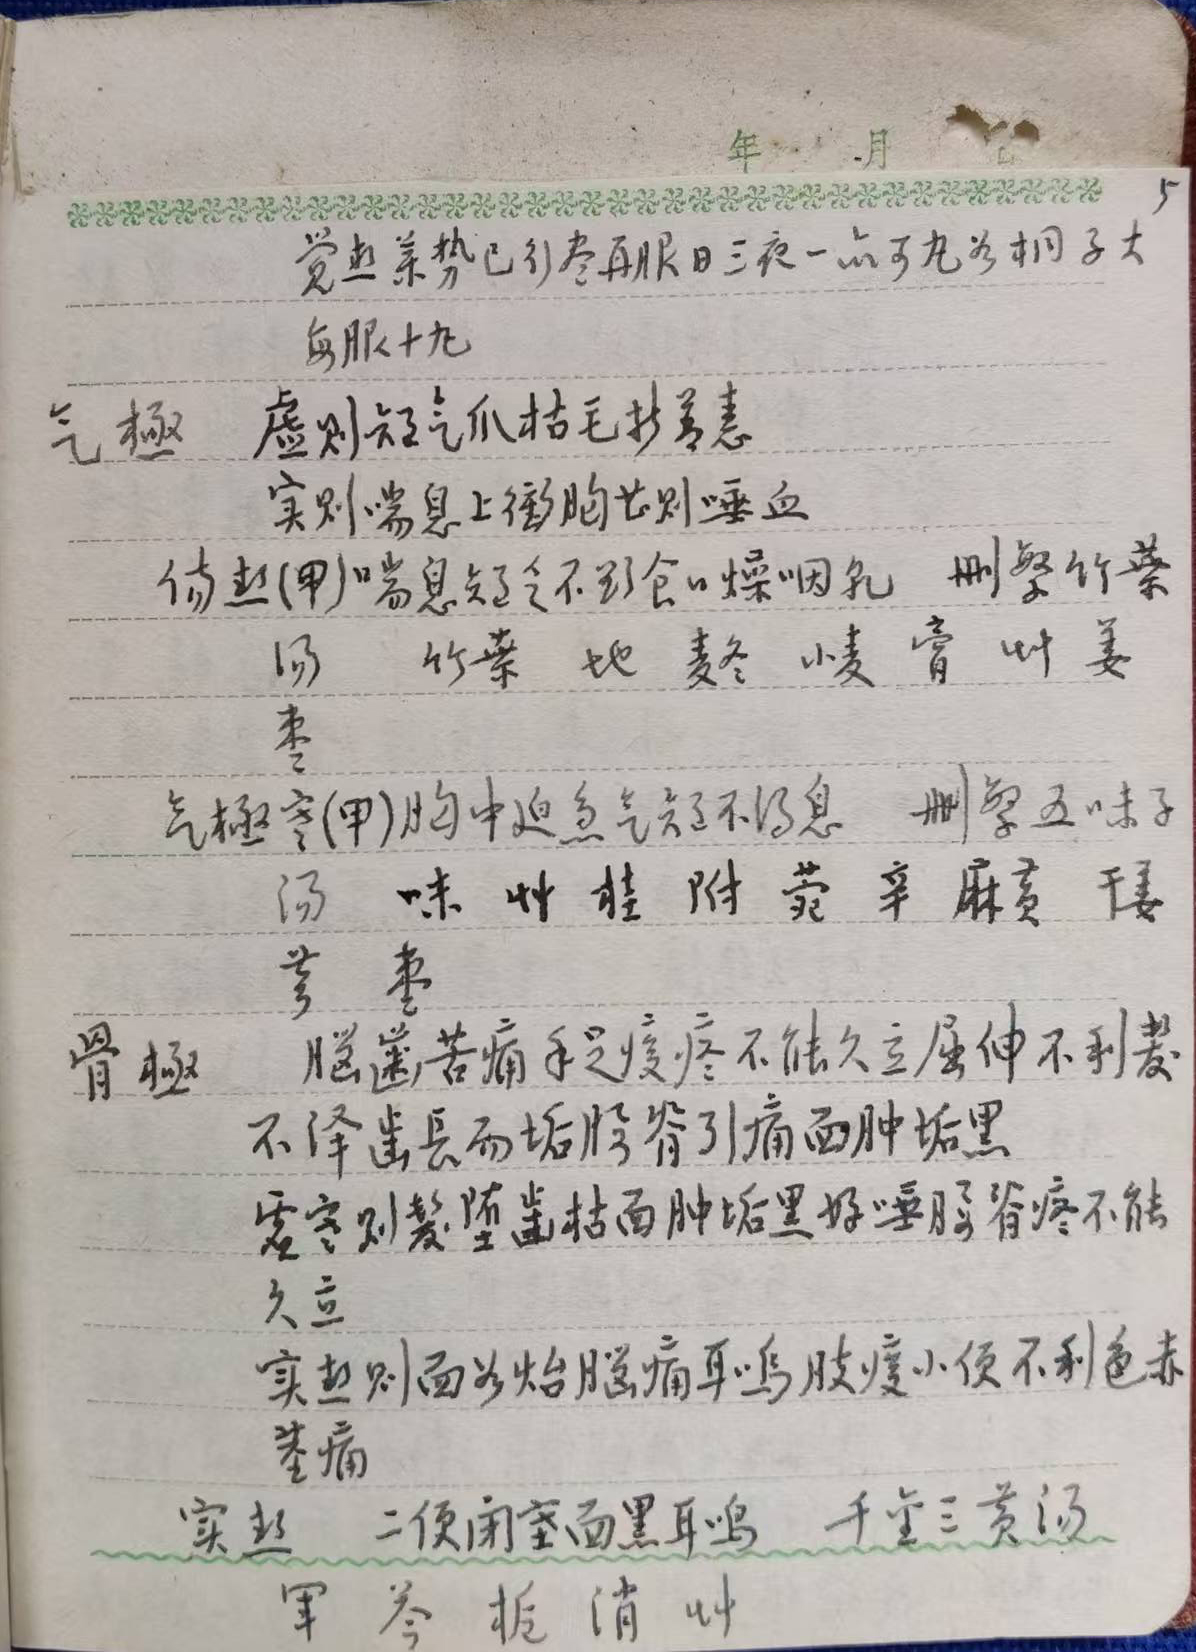 年 月
5
觉热药势已行尽再服日三夜一亦可丸如桐子大
每服十九
气極 虚则短气爪枯毛折善恚
实则喘息上衝胸甚则唾血
伤热(甲)喘息短气不欲食口燥咽乳 删繁竹葉
汤 竹葉 地 麦冬 小麦 膏 艸 姜
枣
气極寒(甲)胸中迫急气短不得息 删繁五味子
汤 味 艸 桂 附 菀 辛 麻黄 干姜
芎 枣
骨極 脑齒苦痛手足痠疼不能久立屈伸不利髮
不泽齒長而垢腰脊引痛面肿垢黑
虚寒则髮堕齒枯面肿垢黑好唾腰脊疼不能
久立
实热则面如炲脑痛耳鸣肢痠小便不利色赤
茎痛
实热 二便闭塞面黑耳鸣 千金三黄汤
军 芩 栀 消 艸